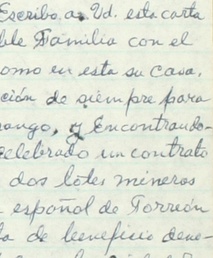 Escribo, a Ud. esta carta
ble Familia con el
omo en esta su casa,
ción de siempre para
ango, y Encontrando-
celebrado un contrato
dos lotes mineros
español de Torreón
de beneficio dene-